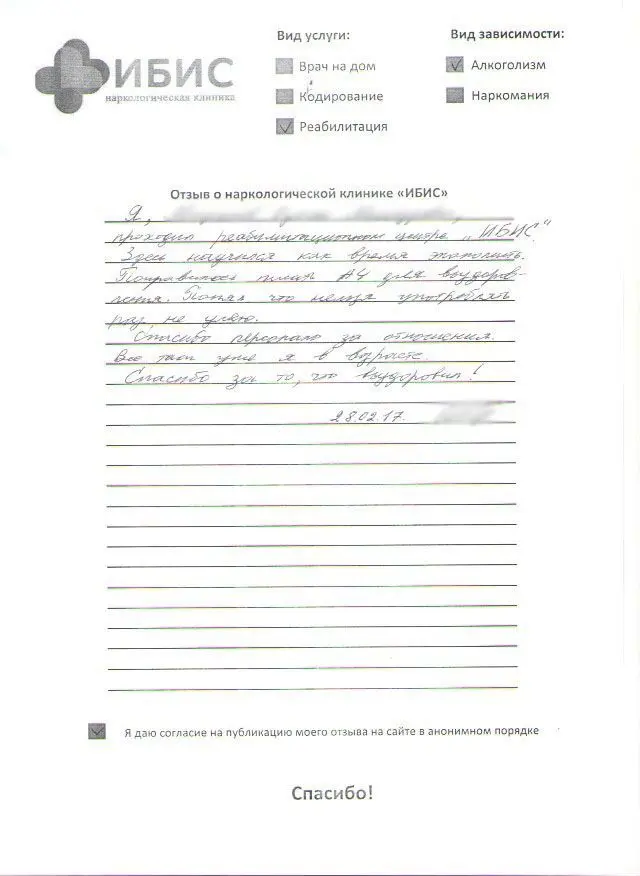 ИБИС
наркологическая клиника
Вид услуги:
Врач на дом
Кодирование
Реабилитация
Вид зависимости:
Алкоголизм
Наркомания
Отзыв о наркологической клинике «ИБИС»
Я,
проходил реабилитационном центре „ИБИС"
Здесь научился как время экономить.
Понравилось план А4 для выздоров-
ления. Понял что нельзя употреблять
раз не умею.
Спасибо персоналу за отношения.
Все таки уже я в возрасте.
Спасибо за то, что выздоровил!
28.02.17.
Я даю согласие на публикацию моего отзыва на сайте в анонимном порядке
Спасибо!